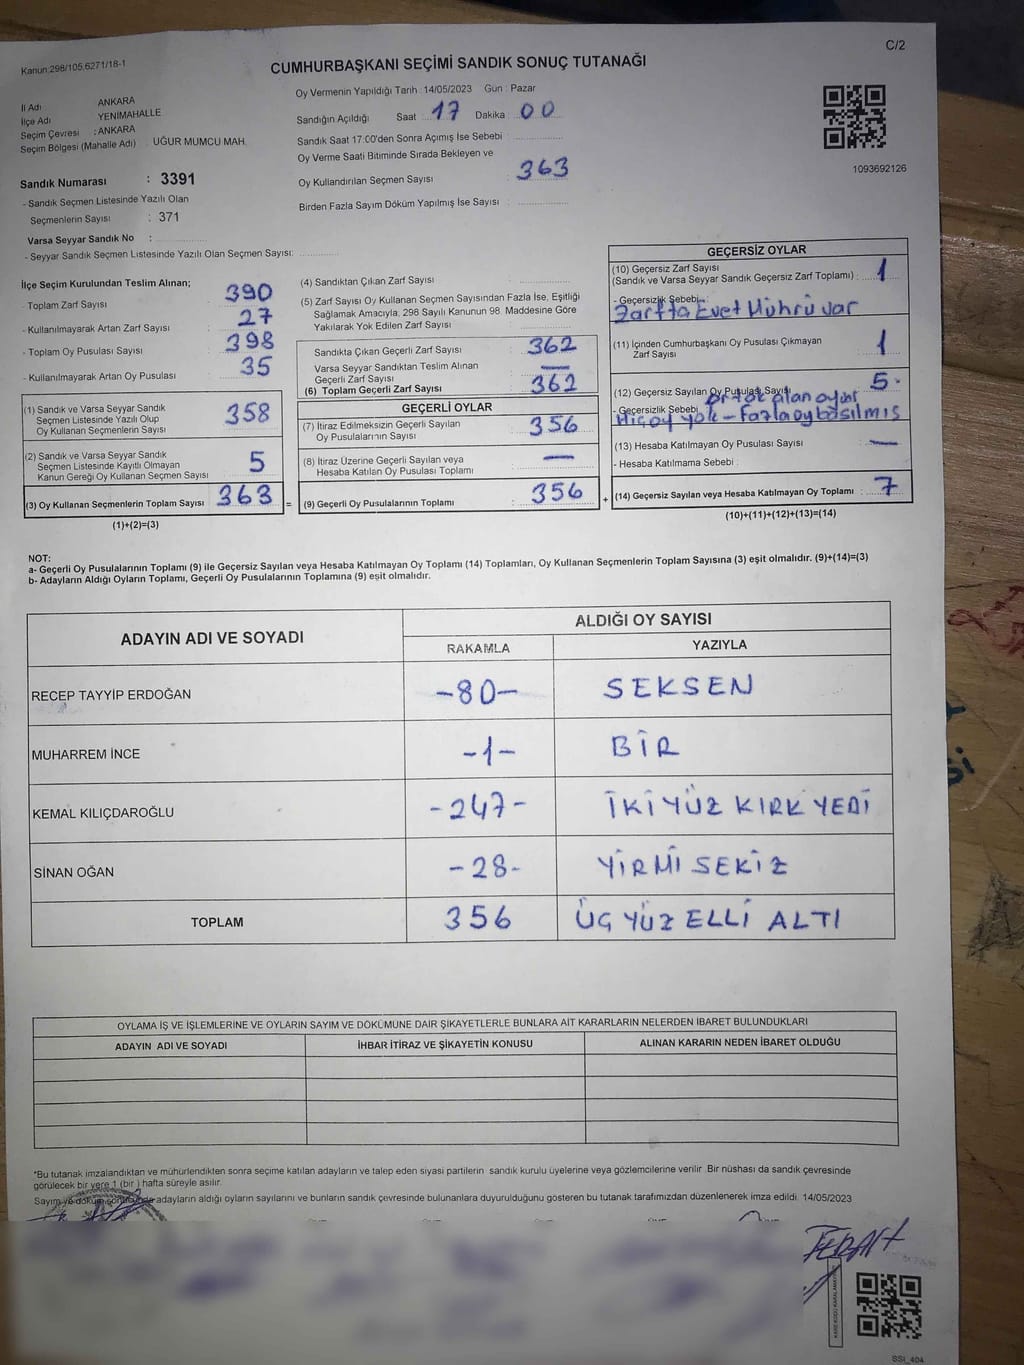 C/2
Kanun:298/105.6271/18-1
CUMHURBAŞKANI SEÇİMİ SANDIK SONUÇ TUTANAĞI
İl Adı ANKARA
İlçe Adı YENİMAHALLE
Seçim Çevresi : ANKARA
Seçim Bölgesi (Mahalle Adı) : UĞUR MUMCU MAH.
Sandık Numarası : 3391
- Sandık Seçmen Listesinde Yazılı Olan
Seçmenlerin Sayısı : 371
Varsa Seyyar Sandık No :
- Seyyar Sandık Seçmen Listesinde Yazılı Olan Seçmen Sayısı:
Oy Vermenin Yapıldığı Tarih : 14/05/2023 Gün : Pazar
Sandığın Açıldığı Saat 17 Dakika 00
Sandık Saat 17:00'den Sonra Açımış İse Sebebi
Oy Verme Saati Bitiminde Sırada Bekleyen ve
Oy Kullandırılan Seçmen Sayısı : 363
Birden Fazla Sayım Döküm Yapılmış İse Sayısı :
1093692126
İlçe Seçim Kurulundan Teslim Alınan;
- Toplam Zarf Sayısı : 390
- Kullanılmayarak Artan Zarf Sayısı : 27
- Toplam Oy Pusulası Sayısı : 398
- Kullanılmayarak Artan Oy Pusulası : 35
(1) Sandık ve Varsa Seyyar Sandık
Seçmen Listesinde Yazılı Olup
Oy Kullanan Seçmenlerin Sayısı 358
(2) Sandık ve Varsa Seyyar Sandık
Seçmen Listesinde Kayıtlı Olmayan
Kanun Gereği Oy Kullanan Seçmen Sayısı 5
(3) Oy Kullanan Seçmenlerin Toplam Sayısı 363 =
(1)+(2)=(3)
(4) Sandıktan Çıkan Zarf Sayısı :
(5) Zarf Sayısı Oy Kullanan Seçmen Sayısından Fazla İse, Eşitliği
Sağlamak Amacıyla, 298 Sayılı Kanunun 98. Maddesine Göre
Yakılarak Yok Edilen Zarf Sayısı :
Sandıkta Çıkan Geçerli Zarf Sayısı : 362
Varsa Seyyar Sandıktan Teslim Alınan
Geçerli Zarf Sayısı : —
(6) Toplam Geçerli Zarf Sayısı : 362
GEÇERLİ OYLAR
(7) İtiraz Edilmeksizin Geçerli Sayılan
Oy Pusulalarının Sayısı : 356
(8) İtiraz Üzerine Geçerli Sayılan veya
Hesaba Katılan Oy Pusulası Toplamı : —
(9) Geçerli Oy Pusulalarının Toplamı : 356 +
GEÇERSİZ OYLAR
(10) Geçersiz Zarf Sayısı
(Sandık ve Varsa Seyyar Sandık Geçersiz Zarf Toplamı) : 1
- Geçersizlik Sebebi :
Zarfta Evet Mührü var
(11) İçinden Cumhurbaşkanı Oy Pusulası Çıkmayan
Zarf Sayısı : 1
(12) Geçersiz Sayılan Oy Pusulası Sayısı 5
- Geçersizlik Sebebi ortak alan oyu
Hiç oy yok - Fazla oy basılmış
(13) Hesaba Katılmayan Oy Pusulası Sayısı : —
- Hesaba Katılmama Sebebi :
(14) Geçersiz Sayılan veya Hesaba Katılmayan Oy Toplamı : 7
(10)+(11)+(12)+(13)=(14)
NOT:
a- Geçerli Oy Pusulalarının Toplamı (9) ile Geçersiz Sayılan veya Hesaba Katılmayan Oy Toplamı (14) Toplamları, Oy Kullanan Seçmenlerin Toplam Sayısına (3) eşit olmalıdır. (9)+(14)=(3)
b- Adayların Aldığı Oyların Toplamı, Geçerli Oy Pusulalarının Toplamına (9) eşit olmalıdır.
ADAYIN ADI VE SOYADI
ALDIĞI OY SAYISI
RAKAMLA YAZIYLA
RECEP TAYYİP ERDOĞAN -80- SEKSEN
MUHARREM İNCE -1- BİR
KEMAL KILIÇDAROĞLU -247- İKİ YÜZ KIRK YEDİ
SİNAN OĞAN -28- YİRMİ SEKİZ
TOPLAM 356 ÜÇ YÜZ ELLİ ALTI
OYLAMA İŞ VE İŞLEMLERİNE VE OYLARIN SAYIM VE DÖKÜMÜNE DAİR ŞİKAYETLERLE BUNLARA AİT KARARLARIN NELERDEN İBARET BULUNDUKLARI
ADAYIN ADI VE SOYADI İHBAR İTİRAZ VE ŞİKAYETİN KONUSU ALINAN KARARIN NEDEN İBARET OLDUĞU
*Bu tutanak imzalandıktan ve mühürlendikten sonra seçime katılan adayların ve talep eden siyasi partilerin sandık kurulu üyelerine veya gözlemcilerine verilir. Bir nüshası da sandık çevresinde
görülecek bir yere 1 (bir ) hafta süreyle asılır.
Sayım ve döküm sonucunda adayların aldığı oyların sayılarını ve bunların sandık çevresinde bulunanlara duyurulduğunu gösteren bu tutanak tarafımızdan düzenlenerek imza edildi. 14/05/2023
SSI_404